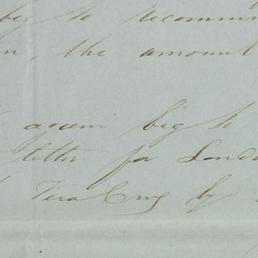 beg to recommen
n, the amount
again beg to
letter for Lond
Vera Cruz by